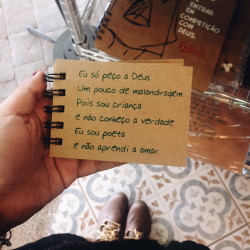 ENTRAR
EM
COMPETIÇÃO
COM
DEUS.
Eu só peço a Deus
Um pouco de malandragem
Pois sou criança
e não conheço a verdade
Eu sou poeta
e não aprendi a amar